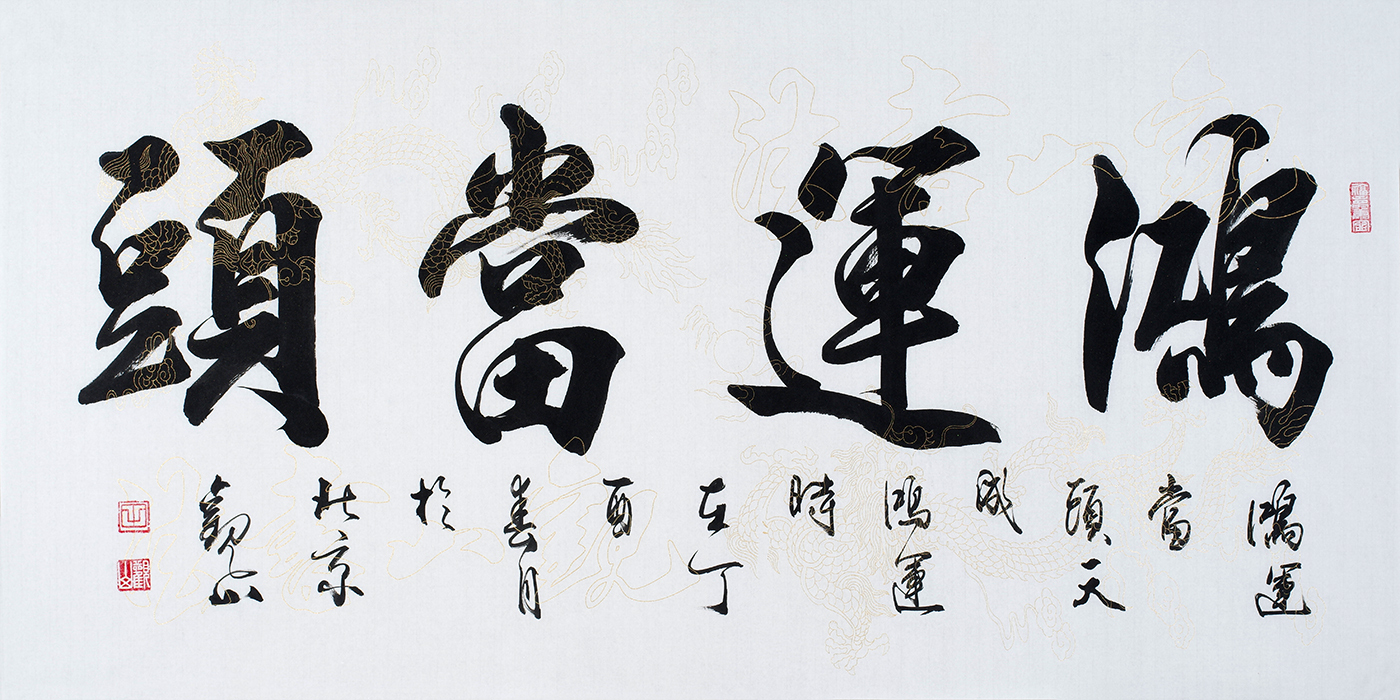 鴻運當頭
鴻運
當
頭天
成
鴻運
時
在丁
酉
春月
於
北京
觀山